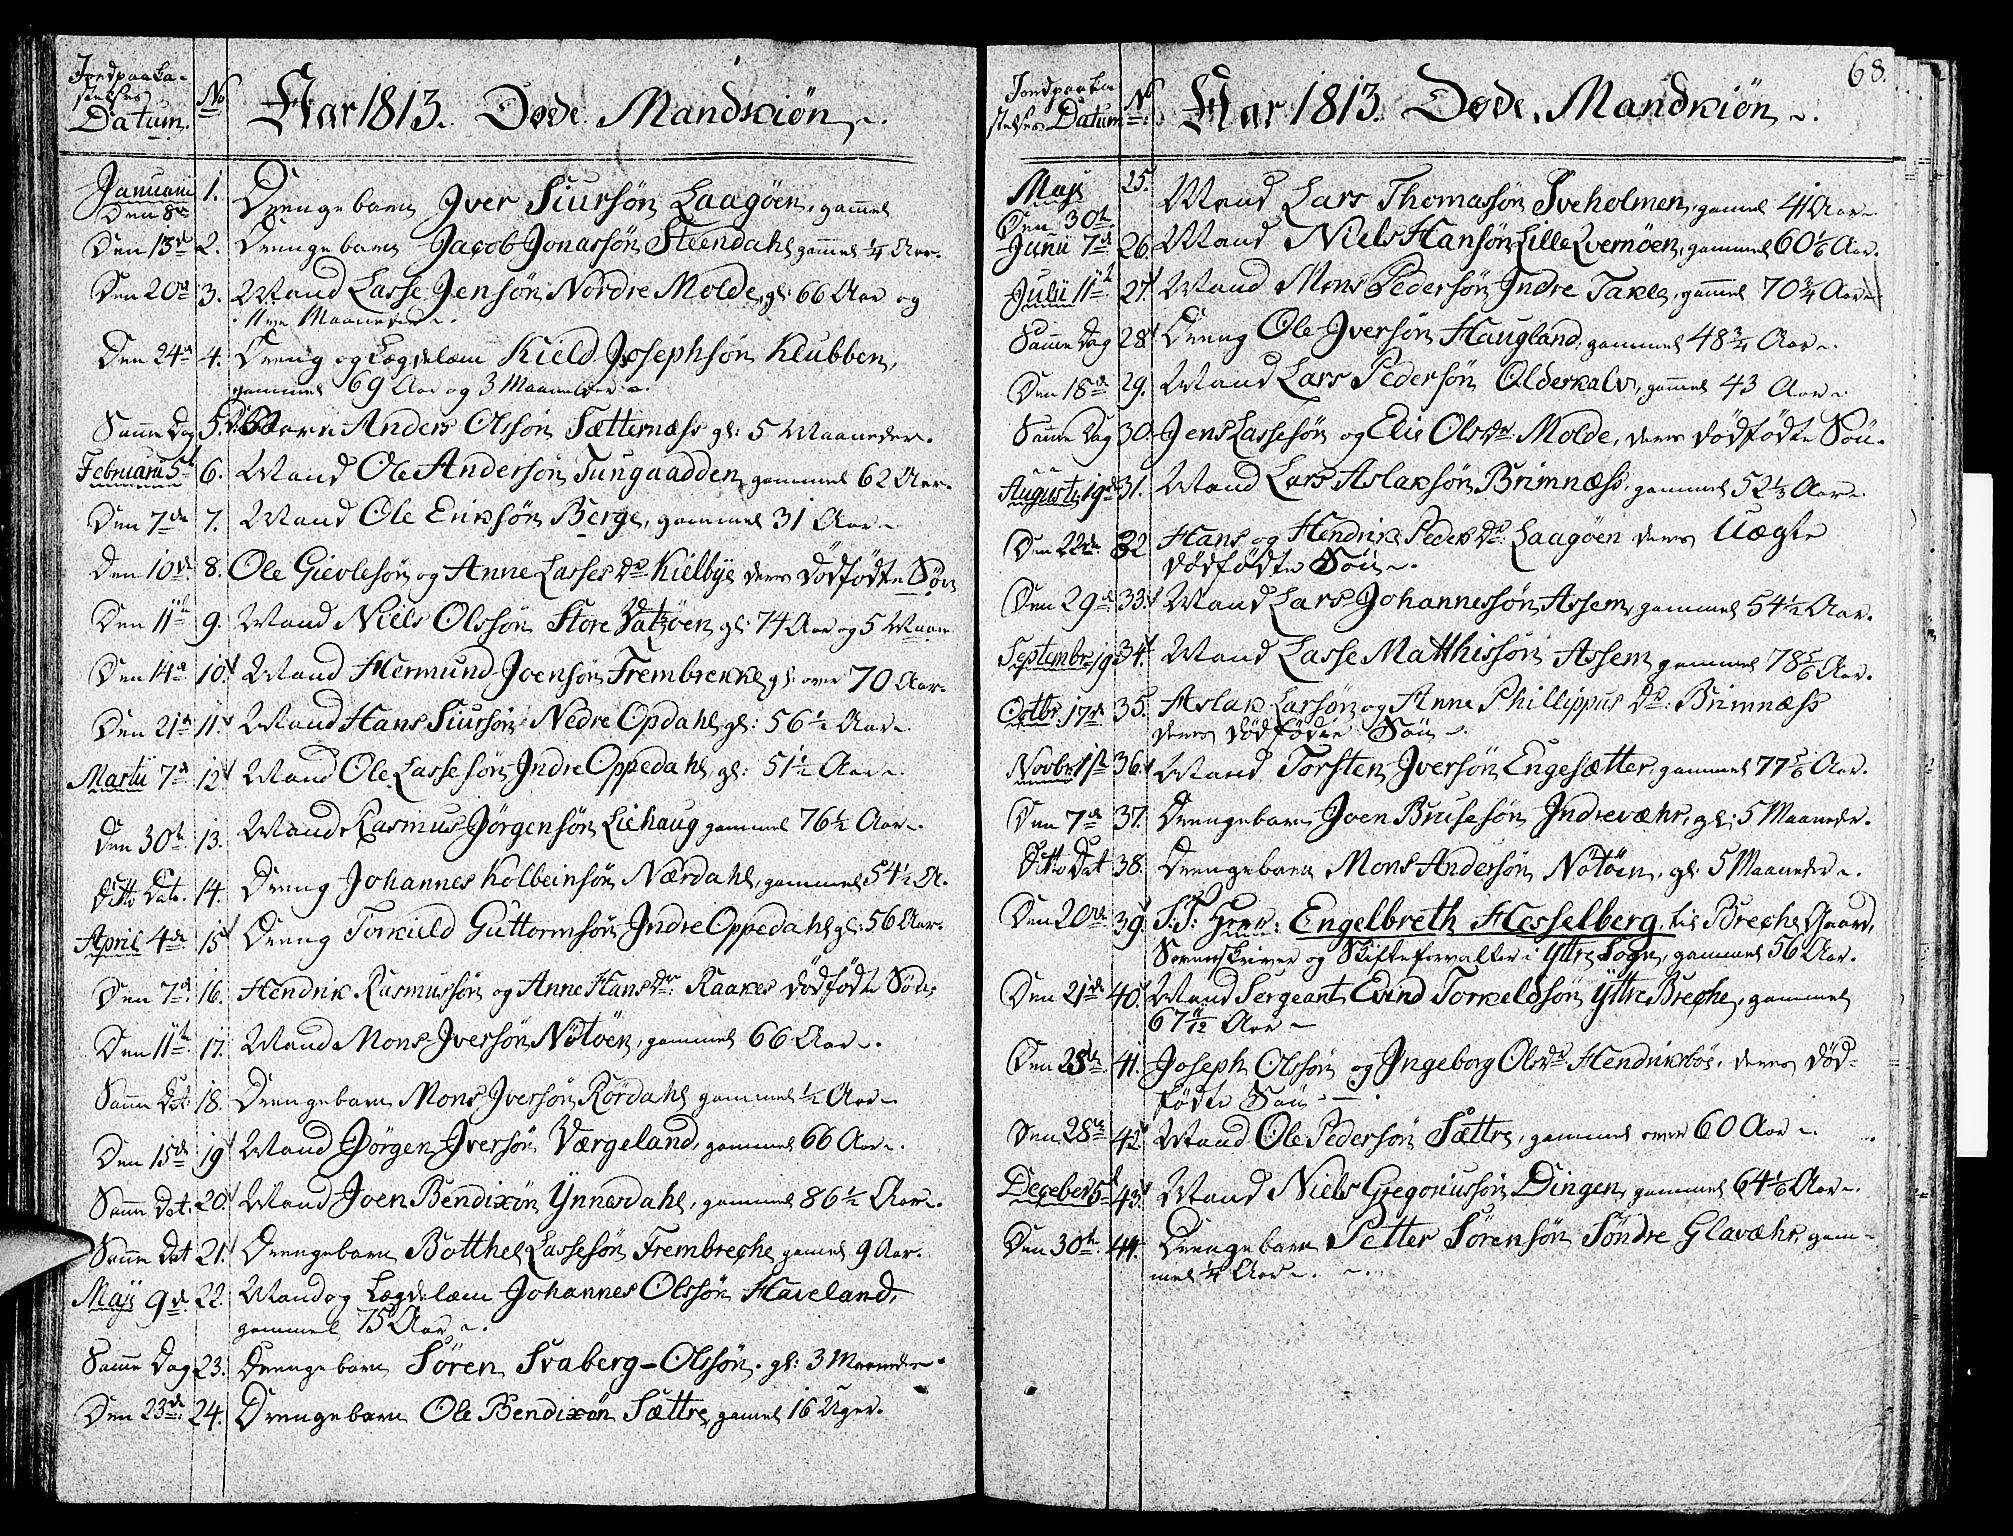 Jordpaaka-
stelses
Datum. No Aar 1813. Døde Mandkiön.
Januarii 1. Drengebarn Iver Siursön Laagöen, gammel
Den 8de
Den 13de 2. Drengebarn Jacob Jonassön Steendahl gammel 1/4 Aar.
Den 20de 3. Mand Lasse Jensön Nordre Molde, gl: 66 Aar og
Maaneder.
Den 24de 4. Dreng og Lægdslæm Kield Josephsön Klubben,
gammel 69 Aar og 3 Maaneder.
Samme Dag 5. Anders Olssön Sætternæss gl: 5 Maaneder.
Februarii 5te 6. Mand Ole Andersön Tungaadden gammel 62 Aar.
Den 7de 7. Mand Ole Eriksön Berge, gammel 31 Aar.
Den 10de 8. Ole Gievlesön og Anne Lasses Dr Kielbye deres dödfödte Sön
Den 11te 9. Mand Niels Olssön Store Batzöen gl: 74 Aar og 5 Maan:
Den 14de 10. Mand Hermund Joensön Frembrekke gl: over 70 Aar.
Den 21de 11. Mand Hans Siursön Nedre Opdahl gl: 56 1/2 Aar.
Martii 7de 12. Mand Ole Lassesön Indre Oppedahl gl: 51 1/2 Aar.
Den 30te 13. Mand Rasmus Jörgensön Liehaug gammel 76 1/2 Aar.
Ditto Dato. 14. Dreng Johannes Kolbeinsön Nærdahl, gammel 54 1/2 A.
April 4de 15. Dreng Torkield Guttormsön Indre Oppedahl gl: 56 Aar.
Den 7de 16. Hendrik Rasmussön og Anne Hans Dr: Raakes dödfödte Sön
Den 11te 17. Mand Mons Iversön Nötöen, gammel 66 Aar.
Samme Dat. 18. Drengebarn Mons Iversön Rördahl gammel 1/2 Aar.
Den 15de 19. Mand Jörgen Iversön Værgeland, gammel 66 Aar.
Samme Dat. 20. Mand Joen Bendixön Ynnesdahl, gammel 86 1/2 Aar.
Samme Dat 21. Drengebarn Botthel Lassesön Frembreche gamel 9 Aar.
Maji 9de 22. Mand og Lægdslæm Johannes Olssön Haveland,
gammel 75 Aar.
Samme Dag 23. Drengebarn Sören Svaberg-Olssön. gl: 3 Maaneder.
Den 23de 24. Drengebarn Ole Bendixön Sættre, gamel 16 Uger.
68.
Jordpaaka-
stelses Datum No Aar 1813. Døde Mandkiön.
Maji 25. Mand Lars Thomassön Sveholmen, gamel 41 Aar.
Den 30te
Junii 7de 26. Mand Niels Hansön Lille Qvernöen, gammel 60 1/6 Aar.
Julii 11te 27. Mand Mons Pedersön Indre Takle, gammel 70 3/4 Aar.
Samme Dag 28. Dreng Ole Iversön Haugland, gammel 48 3/4 Aar.
Den 18de 29. Mand Lars Pedersön Olderkalv, gammel 43 Aar.
Samme Dag 30. Jens Lassesön og Elie Ols Dr Molde, deres dödfödte Sön.
Augusti 19de 31. Mand Lars Aslaksön Brimnæss gammel 52 1/3 Aar.
Den 22de 32. Hans og Hendrike Peders Dr: Laagöen deres Uægte
dödfödte Sön.
Den 29de 33. Mand Lars Johannessön Assem, gammel 54 1/2 Aar.
Septembr 19de 34. Mand Lasse Matthissön Assem gammel 78 5/6 Aar.
Octbr. 17de 35. Aslak Larsön og Anne Phillippus Dr: Brimnæss
deres dödfödte Sön.
Novbr 1ste 36. Mand Torsten Iversön Engesætter, gammel 77 5/6 Aar.
Den 7de 37. Drengebarn Joen Brusesön Indrevæhr, gl: 5 Maaneder.
Ditto Dat 38. Drengebarn Mons Andersön Nötöen, gl: 5 Maaneder.
Den 20de 39. S: T: Herr: Engelbreth Hesselberg, til Breche Gaard,
Sorenskriver og Skifteforvalter i Yttre Sogn, gammel 56 Aar.
Den 21de 40. Mand Sergeant Evind Torkeldsön Yttre Breche, gammel
67 11/12 Aar
Den 25de 41. Joseph Olssön og Ingeborg Ols Dr Hendriksböe, deres död-
födte Sön.
Den 28de 42. Mand Ole Pedersön Sættre, gammel over 60 Aar.
Decebr 5te 43. Mand Niels Gregoriussön Dingen, gammel 64 1/6 Aar.
Den 30te 44. Drengebarn Petter Sörensön Söndre Glavæhr, gam-
mel 1/4 Aar.